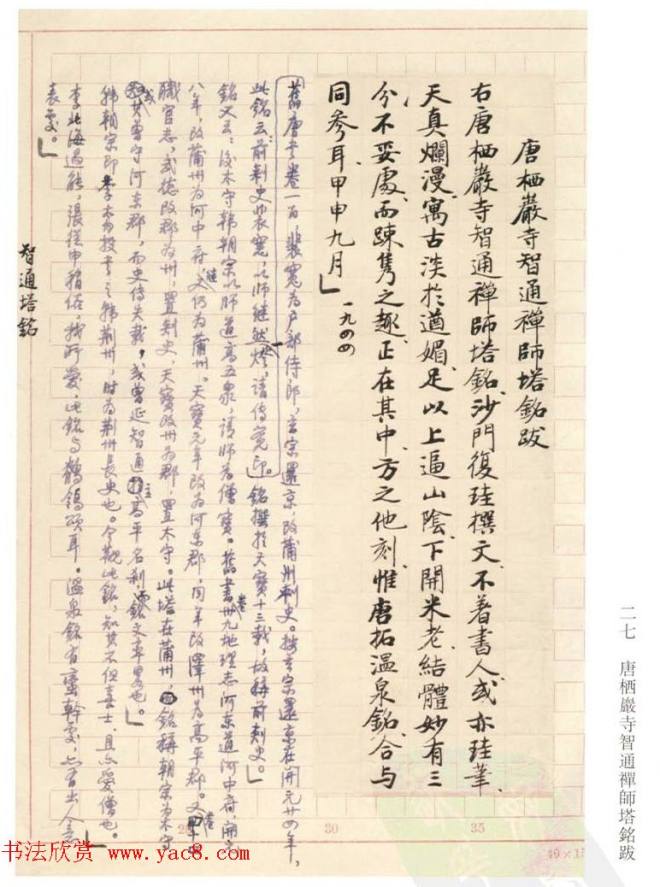 唐栖巖寺智通禪師塔銘跋
右唐栖巖寺智通禪師塔銘、沙門復珪撰文、不着書人、或亦珪筆、
天真爛漫、寓古淡於遒媚、足以上逼山陰、下開米老、結體妙有三
分不妥處、而踈雋之趣、正在其中、方之他刻、惟唐拓温泉銘、合与
同參耳、甲申九月
一九四四
舊唐書卷一百，裴寬為户部侍郎，玄宗還京，改蒲州刺史。按玄宗還京在開元廿四年，
此銘云：前刺史裴寬，以師継然燈，請傳覺印。銘撰於天寶十三載，故稱前刺史。」
銘又云：後太守韓朝宗以師道高五衆，請師為傳寶。舊書卅九地理志河東道河中府，開元
八年，改蒲州為河中府，仍為蒲州。天寶元年改為河東郡，同年改澤州為高平郡。又
職官志，武德改郡為州，置刺史，天寶改州為郡，置太守。此塔在蒲州，銘稱朝宗為太守
或其曾守河東郡，而史傳失載，或曾延智通主高平名刹，銘文未審也。」
韓朝宗即李太白投書之韓荆州，時為荆州長史也。今觀此銘，知其不但喜士，且亦愛僧也。
李北海過能，張從申稍俗，我所愛，此銘与鶺鴒頌耳。温泉銘有蛮幹處，亦有出人意
表處。」
智通塔銘
二七 唐栖巖寺智通禪師塔銘跋
30
35
书法欣赏 www.yac8.com